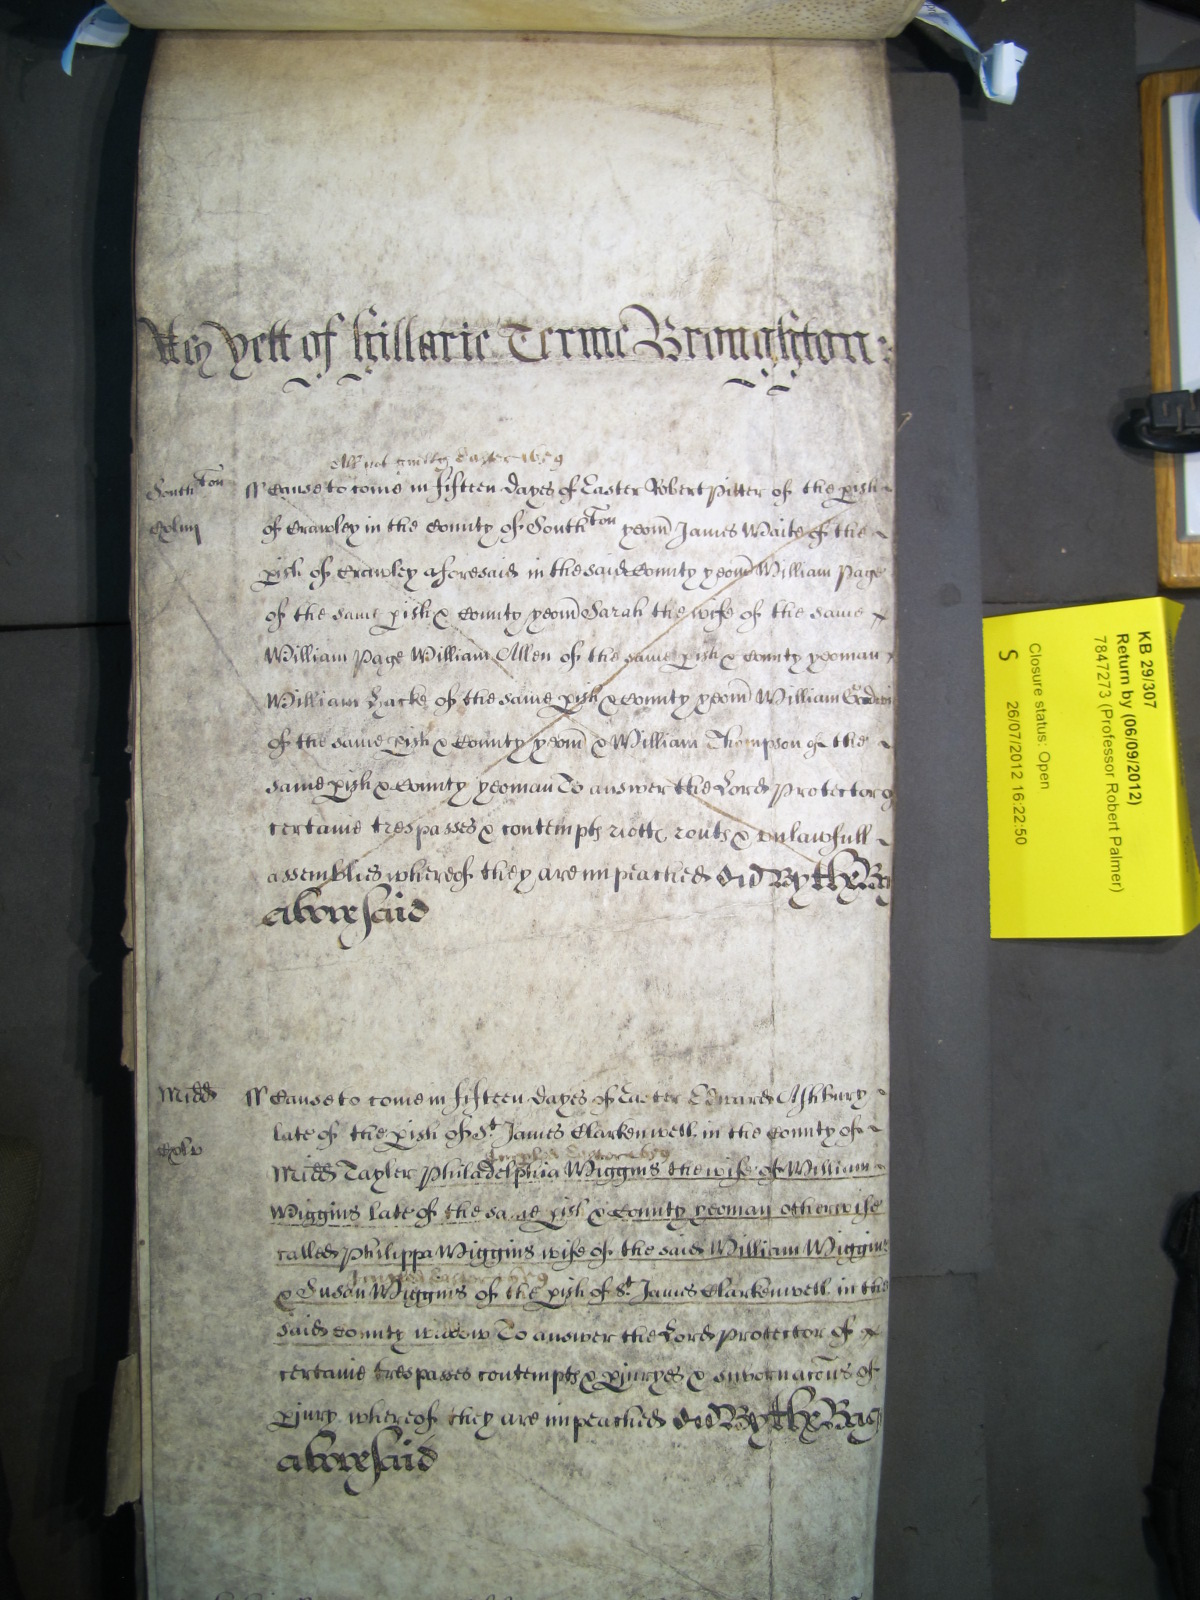 Yett of Hillarie Terme Broughton
All not guilty Easter 1659
South ton
ss Cause to come in fifteen dayes of Easter Robert Pitter of the pish
of Crawley in the County of South ton yeom James Waite of the
pish of Crawley aforesaid in the said County yeom William Page
of the same pish & County yeom Sarah the wife of the same
William Page William Allen of the same pish & County yeoman
William Hacke of the same pish & County yeom William
of the same pish & County yeom & William Thompson of the
same pish & County yeoman To answer the Lord Protector of
certaine trespasses & contempts riotts routs & unlawfull
assemblies whereof they are impeached By the
abovesaid
Midd
ss Cause to come in fifteen dayes of Easter Edward Ashbury
late of the pish of St James Clarkenwell in the County of
Easter 1659
Midd Tayler Philadelphia Wiggins the wife of William
Wiggins late of the same pish & County yeoman otherwise
called Philippa Wiggins wife of the said William Wiggins
Easter 1659
& Susan Wiggins of the pish of St James Clarkenwell in the
said County widdow To answer the Lord Protector of
certaine trespasses contempts & pjuryes & subornacons of
pjury whereof they are impeached By the
abovesaid
KB 29/307
Return by (06/09/2012)
7847273 (Professor Robert Palmer)
Closure status: Open
S 26/07/2012 16:22:50